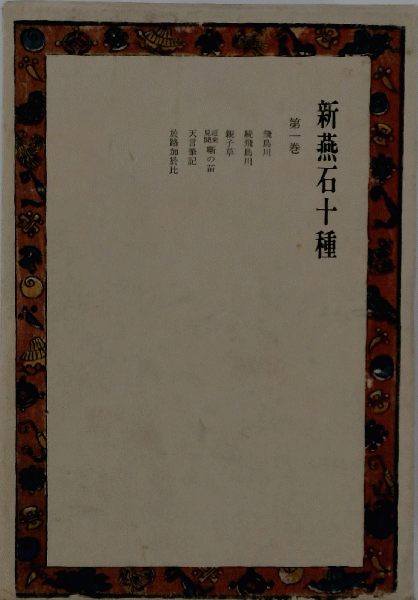 新燕石十種
第一巻
飛鳥川
続飛鳥川
親子草
近来見聞 噺の苗
天言筆記
於路加於比